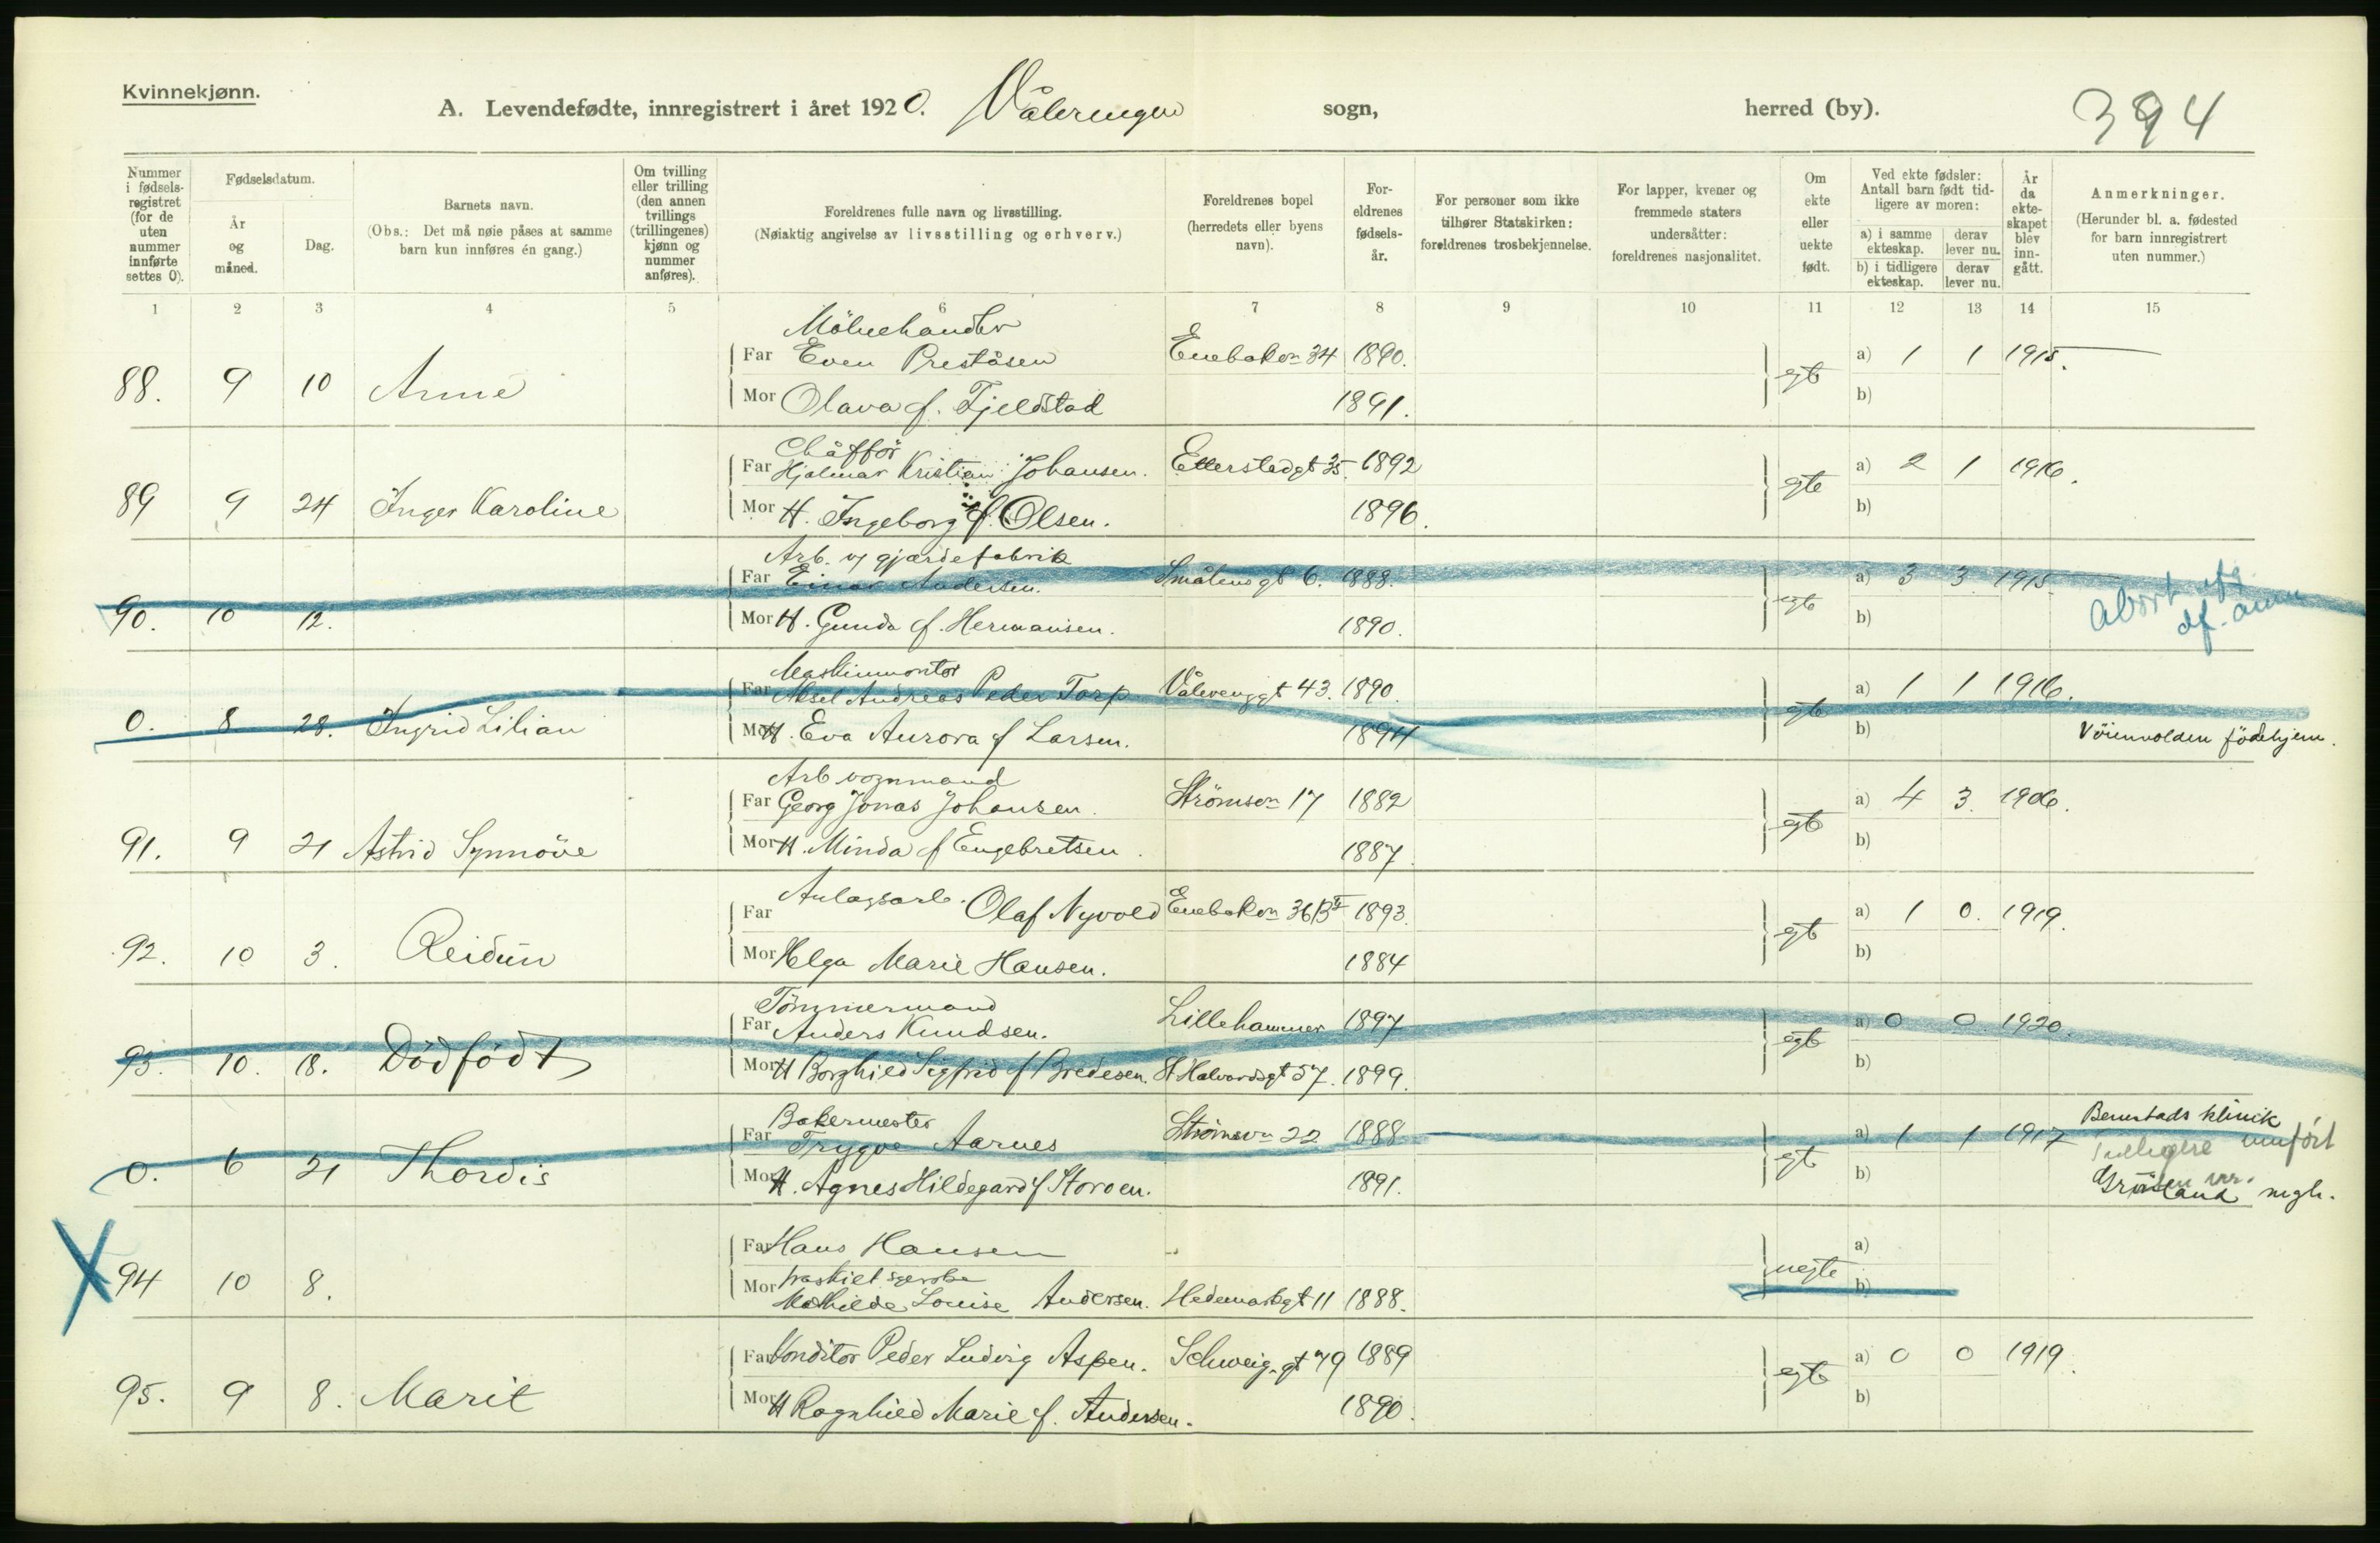 Kvinnekjønn.
A. Levendefødte, innregistrert i året 1920. Våleringen sogn, herred (by). 394
Nummer i fødselsregistret (for de uten nummer innførte settes 0).
Fødselsdatum.
År og måned.
Dag.
Barnets navn.
(Obs.: Det må nøie påses at samme barn kun innføres én gang.)
Om tvilling eller trilling (den annen tvillings (trillingenes) kjønn og nummer anføres).
Foreldrenes fulle navn og livsstilling.
(Nøiaktig angivelse av livsstilling og erhverv.)
Foreldrenes bopel (herredets eller byens navn).
Foreldrenes fødselsår.
For personer som ikke tilhører Statskirken: foreldrenes trosbekjennelse.
For lapper, kvener og fremmede staters undersåtter: foreldrenes nasjonalitet.
Om ekte eller uekte født.
Ved ekte fødsler: Antall barn født tidligere av moren:
a) i samme ekteskap. derav lever nu.
b) i tidligere ekteskap. derav lever nu.
År da ekteskapet blev inngått.
Anmerkninger.
(Herunder bl. a. fødested for barn innregistrert uten nummer.)
1 2 3 4 5 6 7 8 9 10 11 12 13 14 15
Far Even Preståsen Enebakvn 34 1890. a) 1 1 1915.
88. 9 10 Anne egte
Mor Olava f. Fjeldstad 1891. b)
Chåffør
Far Hjalmar Kristian Johansen. Etterstadgt 35. 1892 a) 2 1 1916.
89 9 24 Inger Karoline egte
Mor H. Ingeborg f. Olsen. 1896. b)
Arb. v gjærdefabrik
Far Einar Andersen. Smålensgt 6. 1888. a) 3 3 1915. Abort
90. 10 12. egte
Mor H. Gunda f. Hermansen. 1890. b)
Maskinmontør
Far Aksel Andreas Peder Torp Vålerenggt 43. 1890. a) 1 1 1916.
0. 8 28. Ingrid Lilian egte
Mor H. Eva Aurora f Larsen. 1894 b) Vöienvolden födehjem.
Arb vognmand
Far Georg Jonas Johansen. Strömsvn 17 1882 a) 4 3. 1906.
91. 9 21 Astrid Synnöve egte
Mor H. Minda f Engebretsen. 1887. b)
Anlagsarb.
Far Olaf Nyvold Enebakvn 36 B 1893. a) 1 0. 1919.
92. 10 3. Reidun egte
Mor Helga Marie Hansen. 1884 b)
Tömmermand
Far Anders Knudsen. Lillehammer 1897 a) 0 0 1920.
93. 10. 18. Dödfödt egte
Mor H Borghild Sigfrid f Bredesen. St Halvardsgt 57. 1899. b)
Bakermester
Far Trygve Aarnes Strömsvn 22 1888 a) 1 1 1917 Bernstads klinik
tidligere innført
0. 6 21 Thordis egte
Mor H. Agnes Hildegard f Storoen. 1891. b) Grönland mgh.
Far Hans Hansen a)
94 10 8. uegte
Mor Mathilde Louise Andersen. Hedemarksgt 11 1888. b)
Far Konditor Peder Ludvig Aspen. Schweig. gt 79 1889 a) 0 0 1919.
95. 9 8. Marit egte
Mor H Ragnhild Marie f. Andersen. 1890. b)